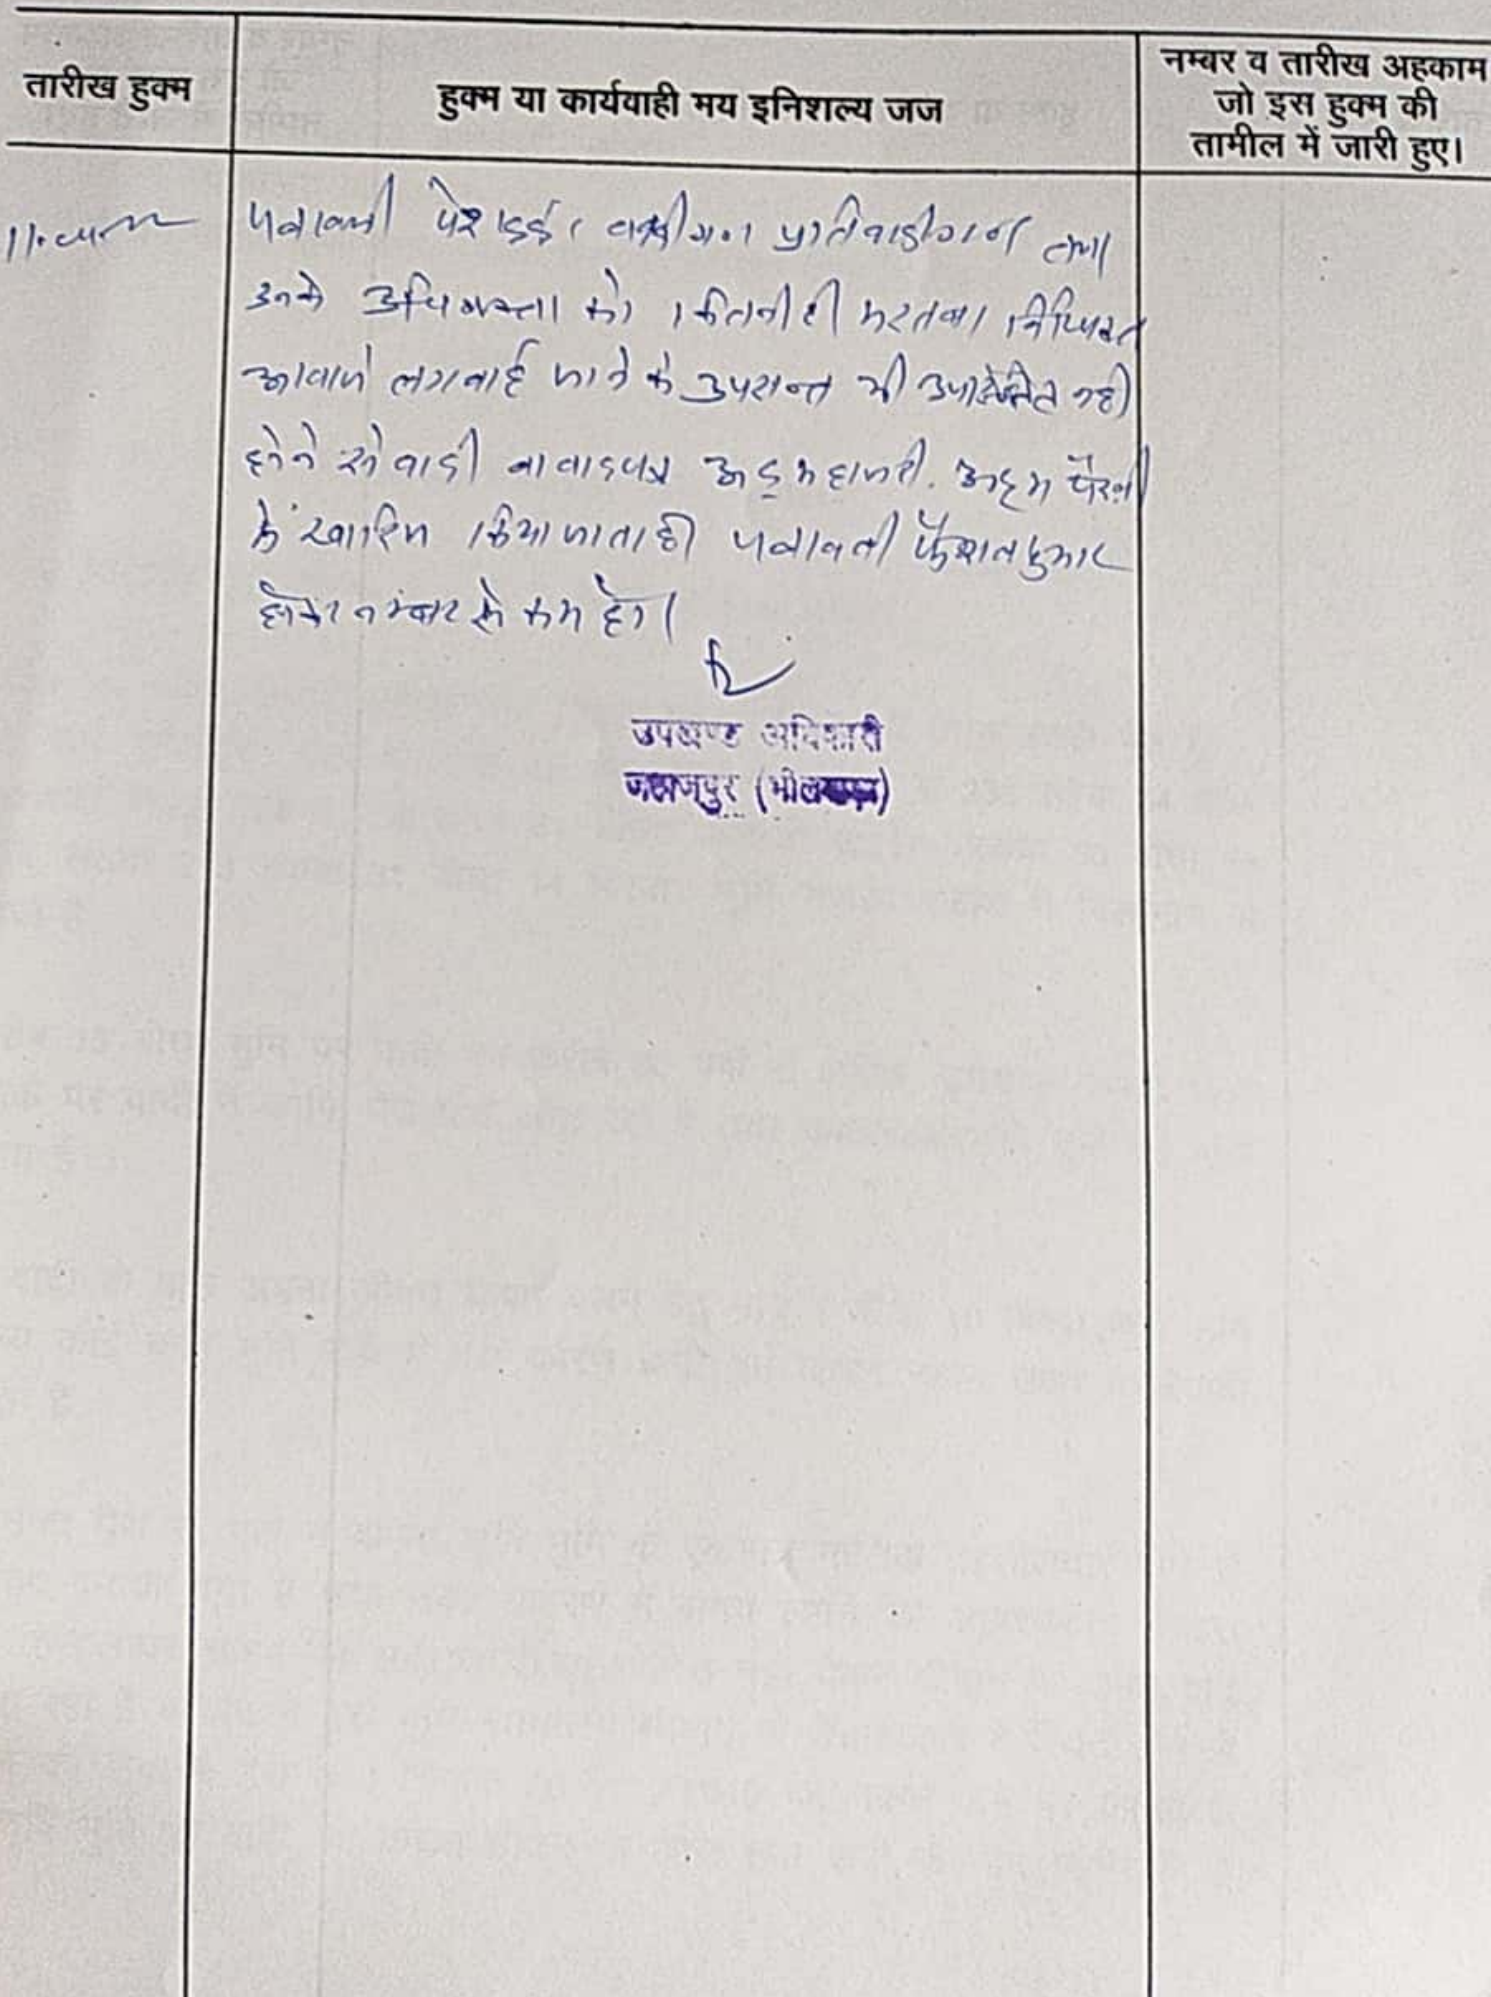 तारीख हुक्म
हुक्म या कार्यवाही मय इनिशल्य जज
नम्बर व तारीख अहकाम
जो इस हुक्म की
तामील में जारी हुए।
पत्रावली पेश हुई। वादीगण प्रतिवादीगण तथा
उनके अधिवक्ता को कितनी ही मरतबा
आवाजे लगवाई जाने के उपरान्त भी उपस्थित नही
होने से वादी का वादपत्र अदम हाजरी. अदम पैरवी
मे खारिज किया जाता है। पत्रावली फैशल शुमार
होकर नम्बर से कम हो।
उपखण्ड अधिकारी
जहाजपुर (भीलवाड़ा)